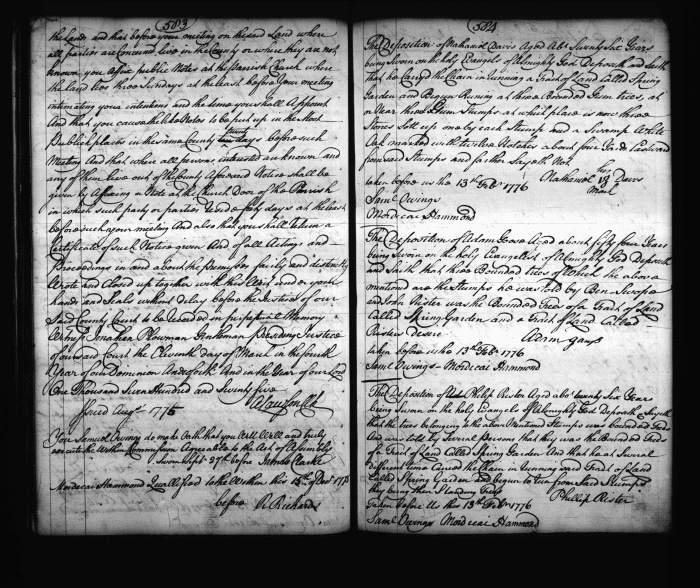 503
the Land and that before your meeting on the said Land where
all parties are Concerned live in the County or where they are not
known you Affix public Notes at the Parrish Church where
the Land lies three Sundays at the least before Your meeting
intimating your intentions and the time you shall Appoint
And that you cause the like Notes to be put up in the Most
Publick places in the same County twenty days before such
Meeting And that where all persons interested are known and
any of them live out of the County Aforesaid Notice shall be
given by Affixing a Note at the Church Door of the Parrish
in which such party or parties reside forty days at the least
before such your meeting And also that you shall return a
Certificate of such Notice given And of all Actings and
Proceedings in and about the premises fairly and distinctly
Wrote and Closed up together with this Writ under your
hands and Seals without delay before the Justices of our
Said County Court to be Recorded in perpetual Memory
Witness Jonathan Plowman Gentleman Presiding Justice
of our said Court the Eleventh day of March in the fourth
Year of our Dominion And so forth And in the Year of our Lord
One Thousand Seven Hundred and Seventy five
Issued Augst. 1775
You Samuel Owings do make Oath that you will Well and truly
execute the within Commission Agreeable to the Act of Assembly
Sworn Sept. 27th before James Clarke
Mordecai Hammond Quallified to the Within this Decr. 1775
before R. Richards
504
The Deposition of Nathaniel Davis Aged Abt. Seventy Six Years
being Sworn on the holy Evangels of Almighty God Deposeth and Saith
that he Carried the Chain in running a Tract of Land Called Spring
Garden and Begun Runing at three Bounded Gum trees, at
or Near three Gum Stumps at which place is now three
Stones Sett up one by each Stump and a Swamp White
Oak marked with twelve Notches about four Yards Eastward
from said Stumps and further Sayeth Not
Nathaniel his Davis
mark
taken before us the 13th Feby. 1776
Saml. Owings
Mordecai Hammond
The Deposition of Adam Goose Aged about fifty four Years
being Sworn on the holy Evangelist of Almighty God Deposeth
and Saith that three Bounded trees of Which the above
mentioned are the Stumps he was told by Ben Swope
and John Rister was the Bounded trees of a Tract of Land
Called Spring Garden and a Tract of Land Called
Risters desire
Adam Gans
taken before us the 13th Feby. 1776
Saml. Owings Mordecai Hammond
The Deposition of Philip Rister Aged abot. twenty Six Years
being Sworn on the holy Evangels of Almighty God Deposeth & Sayeth
that the trees belonging to the above Mentioned Stumps was bounded Trees
And was told by Several Persons that they was the Bounded Trees
of a Tract of Land Called Spring Garden And that he at Several
different times Carried the Chain in running said Tract of Land
Called Spring Garden and begun to run from said Stumps
they being then Standing Trees
Phillip Rister
Taken before Us this 13th Feby. 1776
Saml. Owings Mordecai Hammond